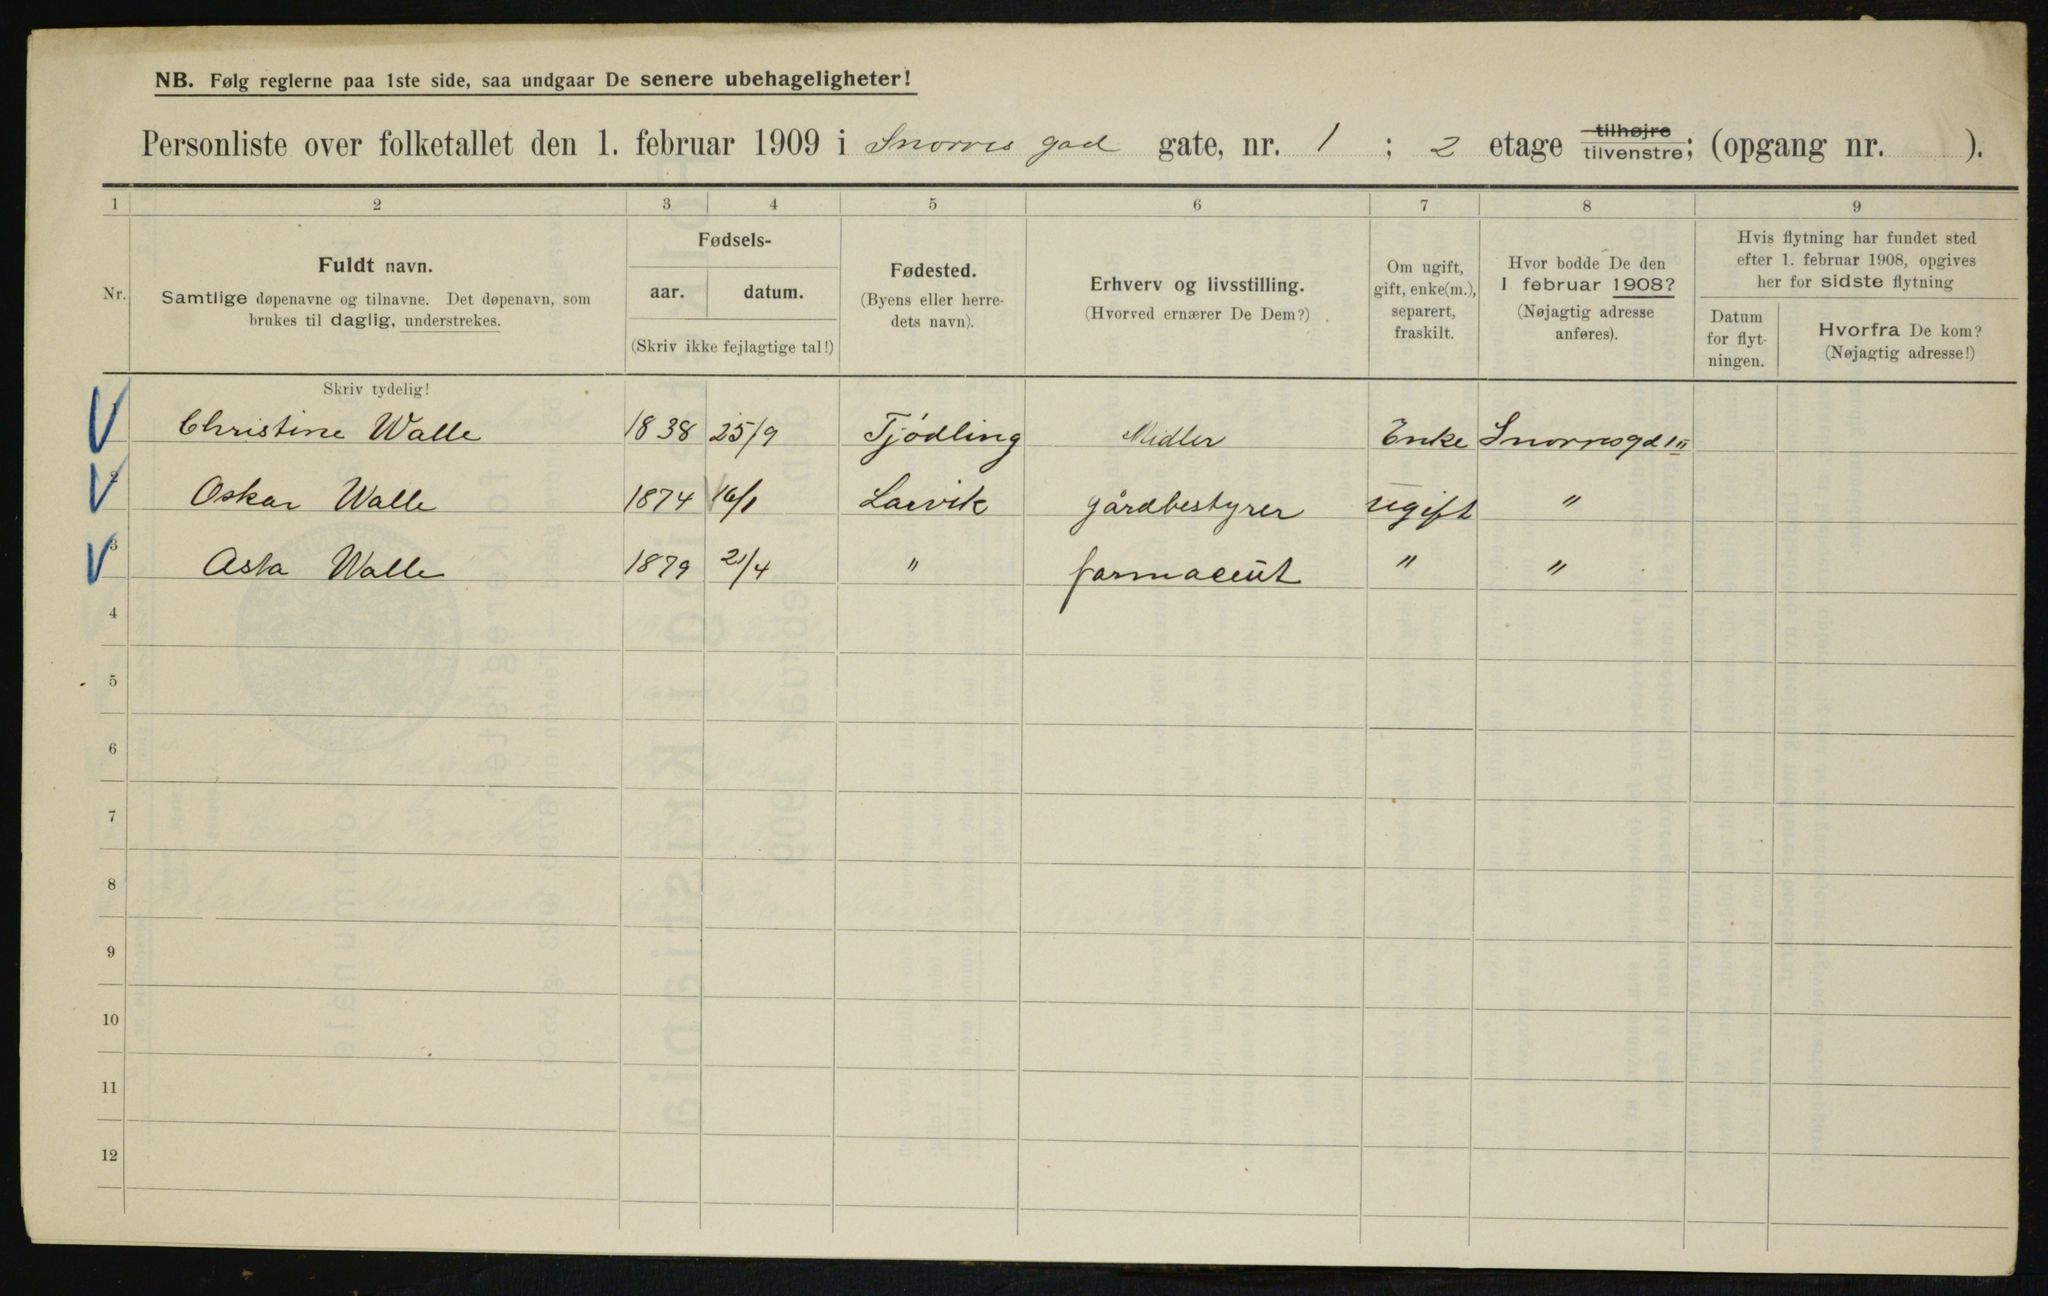 NB. Følg reglerne paa 1ste side, saa undgaar De senere ubehageligheter!
Personliste over folketallet den 1. februar 1909 i Snorres gad gate, nr. 1 ; 2 etage tilhøjre tilvenstre; (opgang nr. ).
1 2 3 4 5 6 7 8 9
Nr.
Fuldt navn.
Samtlige døpenavne og tilnavne. Det døpenavn, som
brukes til daglig, understrekes.
Fødsels-
aar. datum.
(Skriv ikke fejlagtige tal!)
Fødested.
(Byens eller herre-
dets navn).
Erhverv og livsstilling.
(Hvorved ernærer De Dem?)
Om ugift,
gift, enke(m.),
separert,
fraskilt.
Hvor bodde De den
1. februar 1908?
(Nøjagtig adresse
anføres).
Hvis flytning har fundet sted
efter 1. februar 1908, opgives
her for sidste flytning
Datum
for flyt-
ningen.
Hvorfra De kom?
(Nøjagtig adresse!)
Skriv tydelig!
1 Christine Walle 1838 25/9 Tjødling Midler Enke Snorresgd 1 II
2 Oskar Walle 1874 16/1 Larvik gårdbestyrer ugift "
3 Asta Walle 1879 21/4 " farmaceut " "
4
5
6
7
8
9
10
11
12